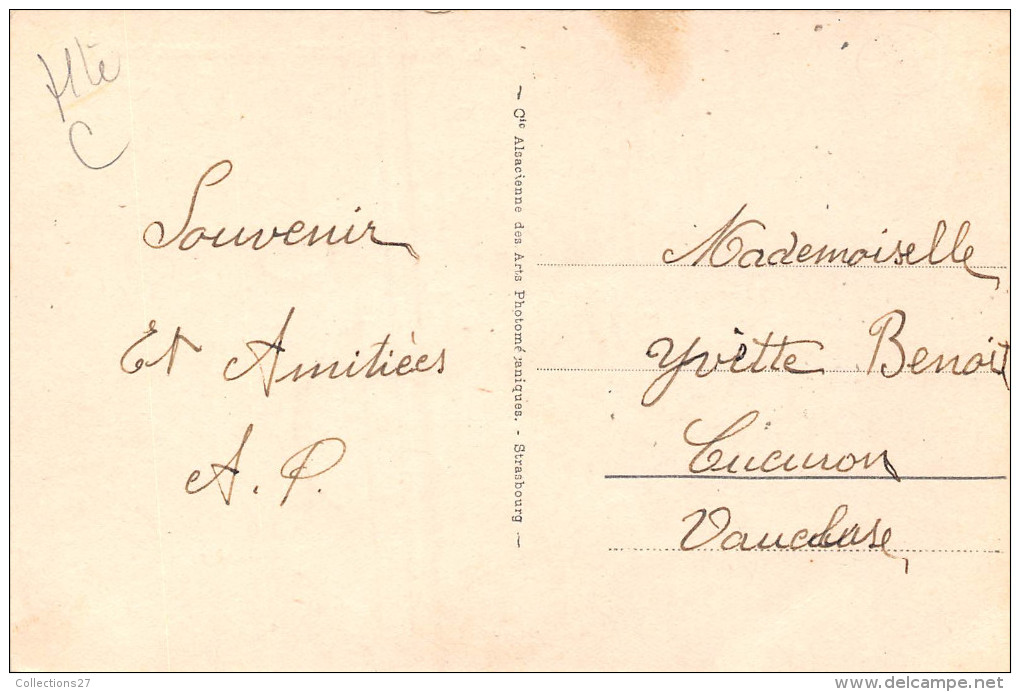 Hte
C
Souvenir
Et Amitiées
A. P.
— Cie Alsacienne des Arts Photomécaniques. - Strasbourg —
Mademoiselle
Yvette Benoit
Cucuron
Vaucluse
Collections27
www.delcampe.net